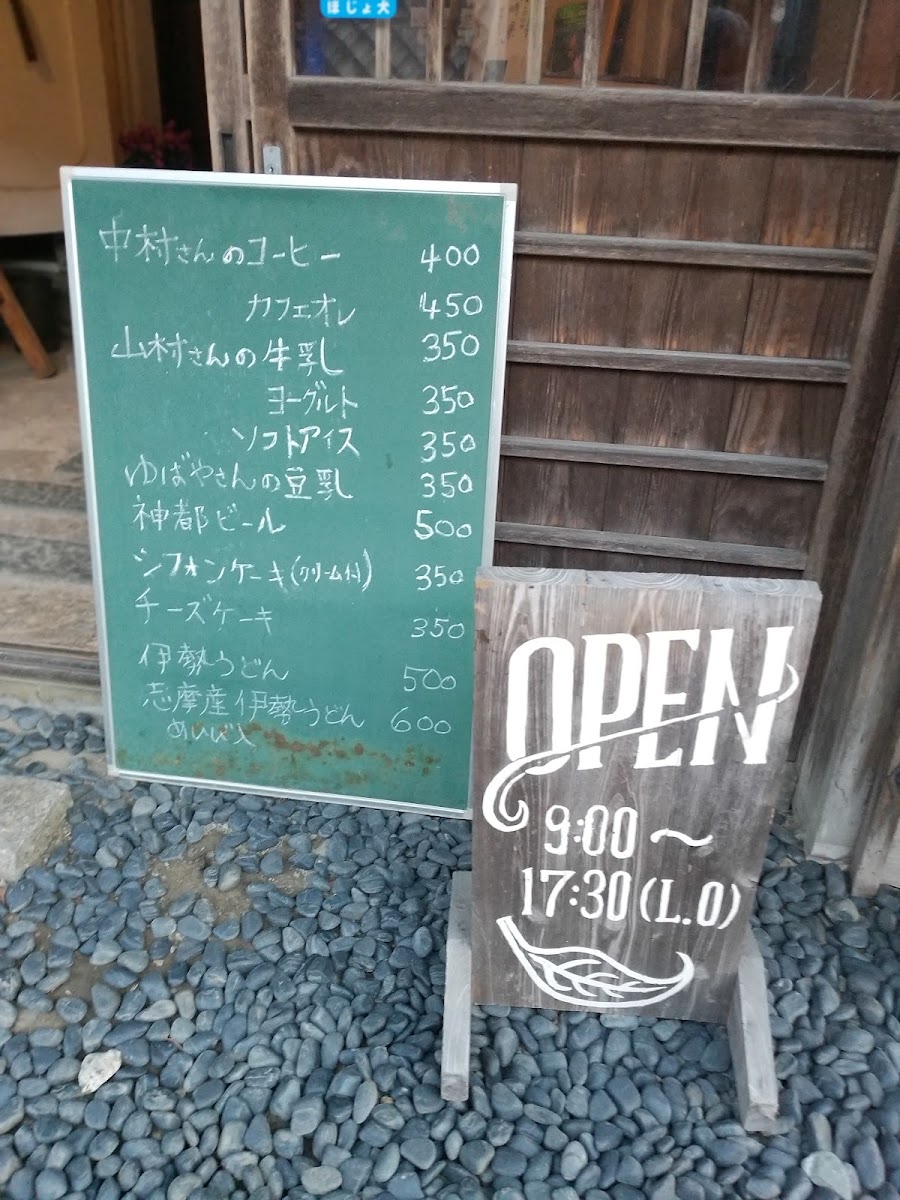 ほじょ犬
中村さんのコーヒー 400
カフェオレ 450
山村さんの牛乳 350
ヨーグルト 350
ソフトアイス 350
ゆばやさんの豆乳 350
神都ビール 500
シフォンケーキ(クリーム付) 350
チーズケーキ 350
伊勢うどん 500
志摩産伊勢うどん 600
OPEN
9:00〜
17:30(L.O)